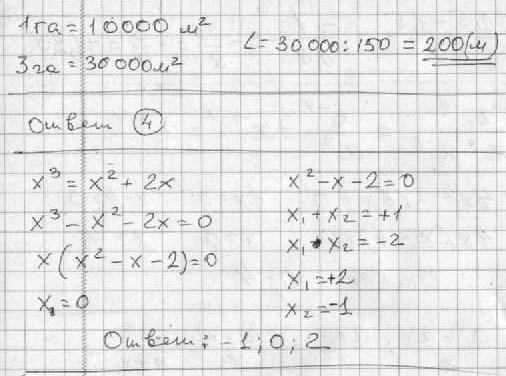 1га = 10000 м²
3га = 30000м²
L = 30000:150 = 200(м)
Ответ ④
x³ = x² + 2x
x³ - x² - 2x = 0
x(x² - x - 2) = 0
x₁ = 0
x² - x - 2 = 0
x₁ + x₂ = +1
x₁ • x₂ = -2
x₁ = +2
x₂ = -1
Ответ: -1; 0; 2